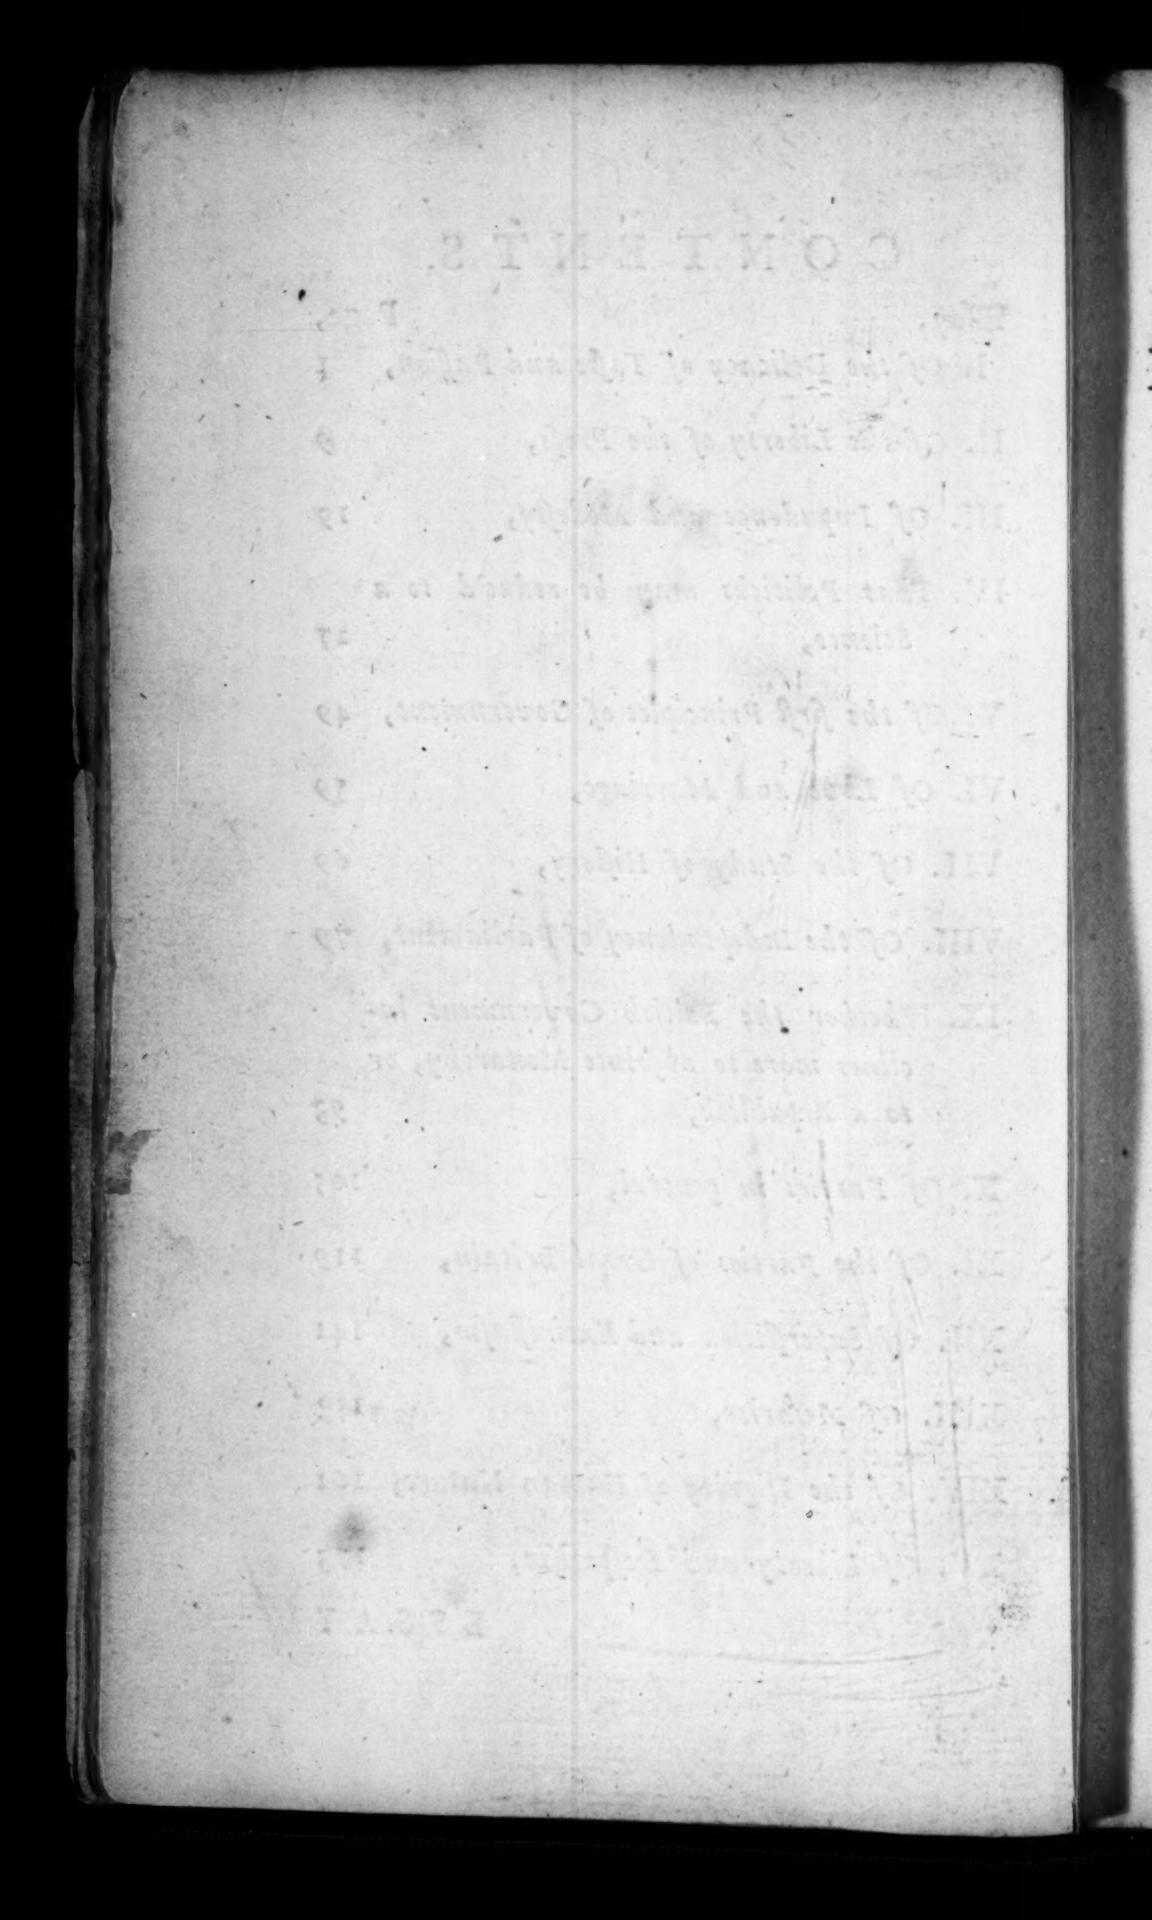 CONTENTS.
Essay, Page,
I. Of the Delicacy of Taste and Passion, 1
II. Of the Liberty of the Press, 9
III. Of Impudence and Modesty, 19
IV. That Politicks may be reduc'd to a
Science, 27
V. Of the first Principles of Government, 49
VI. Of Love and Marriage, 59
VII. Of the Study of History, 69
VIII. Of the Independency of Parliament, 79
IX. Whether the British Government in-
clines more to absolute Monarchy, or
to a Republick, 93
X. Of Parties in general, 105
XI. Of the Parties of Great Britain, 119
XII. Of Superstition and Enthusiasm, 141
XIII. Of Avarice,
XIV. Of the Dignity of Human Nature, 161
XV. Of Liberty and Despotism,
ESSAY